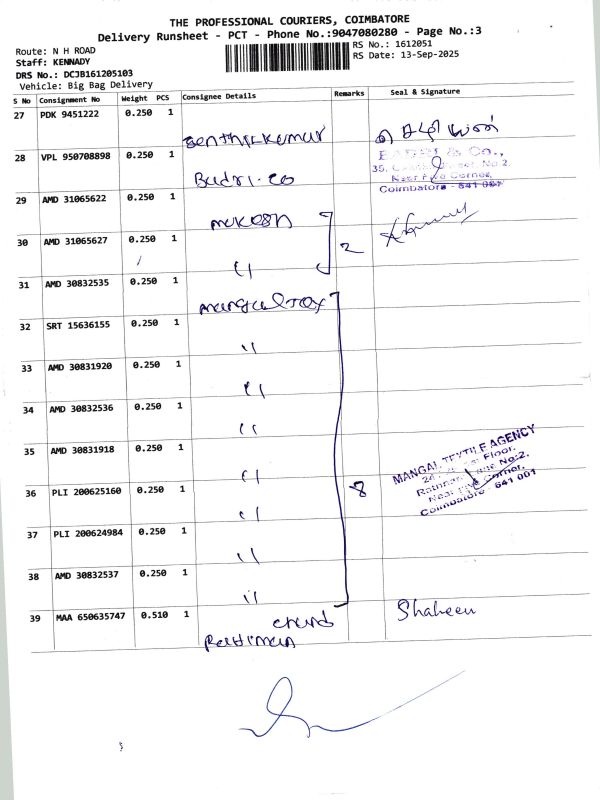 THE PROFESSIONAL COURIERS, COIMBATORE
Delivery Runsheet - PCT - Phone No.:9047080280 - Page No.:3
Route: N H ROAD
RS No.: 1612051
Staff: KENNADY
RS Date: 13-Sep-2025
DRS No.: DCJB161205103
Vehicle: Big Bag Delivery
S No Consignment No Weight PCS Consignee Details Remarks Seal & Signature
27 PDK 9451222 0.250 1
Senthilkumar
28 VPL 950708898 0.250 1
Badri. co
& Co.,
No.2,
Corner,
Coimbatore - 641 001
29 AMD 31065622 0.250 1
mukesh
30 AMD 31065627 0.250 1
2
"
31 AMD 30832535 0.250 1
mangal tex
32 SRT 15636155 0.250 1
"
33 AMD 30831920 0.250 1
"
34 AMD 30832536 0.250 1
"
35 AMD 30831918 0.250 1
"
MANGAL TEXTILE AGENCY
Floor,
No:2,
Corner,
Coimbatore 641 001
36 PLI 200625160 0.250 1
8
"
37 PLI 200624984 0.250 1
"
38 AMD 30832537 0.250 1
"
39 MAA 650635747 0.510 1
Shaheen